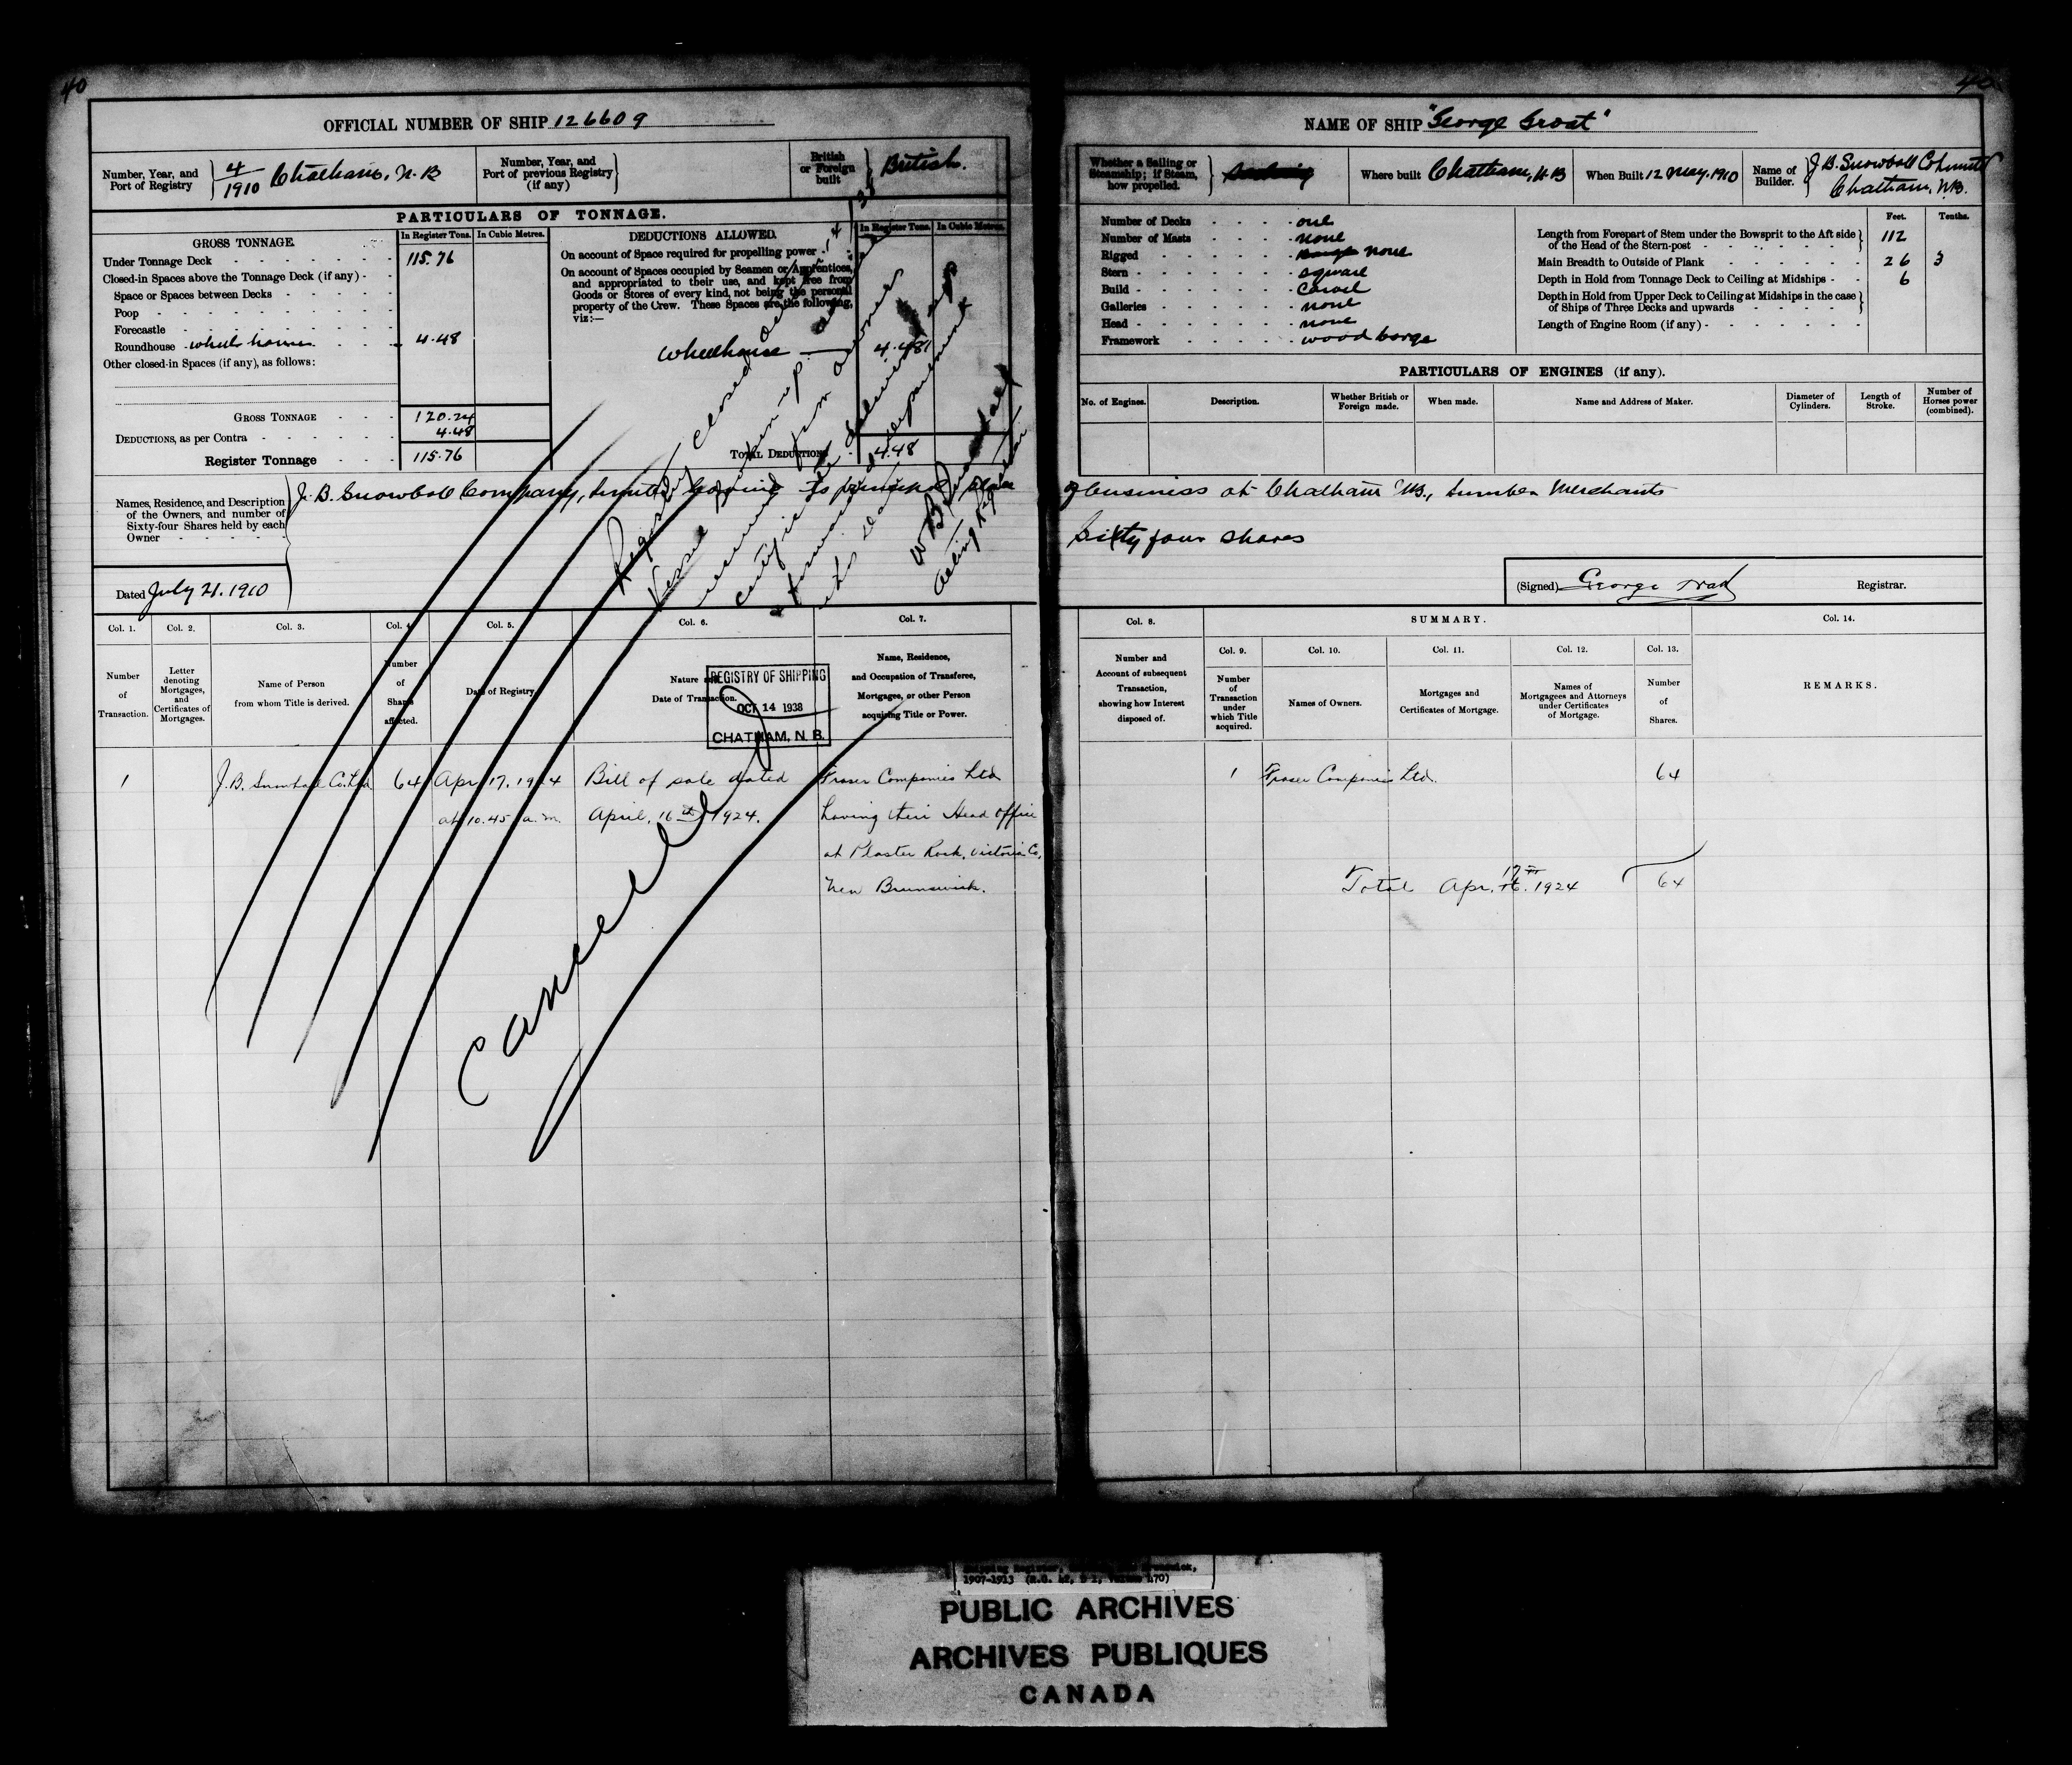 40
OFFICIAL NUMBER OF SHIP 126609
Number, Year, and Port of Registry } 4/1910 Chatham, N.B
Number, Year, and Port of previous Registry (if any) }
British or Foreign built } British.
PARTICULARS OF TONNAGE.
GROSS TONNAGE.
In Register Tons. In Cubic Metres.
Under Tonnage Deck 115.76
Closed-in Spaces above the Tonnage Deck (if any)
Space or Spaces between Decks
Poop
Forecastle
Roundhouse wheel house 4.48
Other closed-in Spaces (if any), as follows:
GROSS TONNAGE 120.24
DEDUCTIONS, as per Contra 4.48
Register Tonnage 115.76
DEDUCTIONS ALLOWED.
In Register Tons. In Cubic Metres.
On account of Space required for propelling power
On account of Spaces occupied by Seamen or Apprentices,
and appropriated to their use, and kept free from
Goods or Stores of every kind, not being the personal
property of the Crew. These Spaces are the following,
viz:—
Wheelhouse 4.48
TOTAL DEDUCTIONS 4.48
Names, Residence, and Description
of the Owners, and number of
Sixty-four Shares held by each
Owner
J. B. Snowball Company, Limited having its principal place
Dated July 21. 1910
Registry closed
Vessel Broken up
from owner
Certificate
forwarded Department
this date
Acting Reg
Col. 1. Col. 2. Col. 3. Col. 4. Col. 5. Col. 6. Col. 7.
Number of Transaction.
Letter denoting Mortgages, and Certificates of Mortgages.
Name of Person from whom Title is derived.
Number of Shares affected.
Date of Registry
Nature and Date of Transaction.
Name, Residence, and Occupation of Transferee, Mortgagee, or other Person acquiring Title or Power.
REGISTRY OF SHIPPING
OCT 14 1938
CHATHAM, N. B.
1 J.B. Snowball Co. Ltd 64 Apr. 17. 1924 Bill of sale dated Fraser Companies Ltd
at 10.45 a.m. April, 16th 1924. having their Head office
at Plaster Rock, Victoria Co,
New Brunswick.
Cancelled
40
NAME OF SHIP "George Groat"
Whether a Sailing or Steamship; if Steam, how propelled. }
Where built Chatham, N.B
When Built 12 May, 1910
Name of Builder. } J B. Snowball Co Limited
Chatham, N.B.
Number of Decks one
Number of Masts none
Rigged none
Stern square
Build Carvel
Galleries none
Head none
Framework wood barge
Feet. Tenths.
Length from Forepart of Stem under the Bowsprit to the Aft side
of the Head of the Stern-post 112
Main Breadth to Outside of Plank 26 3
Depth in Hold from Tonnage Deck to Ceiling at Midships 6
Depth in Hold from Upper Deck to Ceiling at Midships in the case
of Ships of Three Decks and upwards
Length of Engine Room (if any)
PARTICULARS OF ENGINES (if any).
No. of Engines. Description. Whether British or Foreign made. When made. Name and Address of Maker. Diameter of Cylinders. Length of Stroke. Number of Horses power (combined).
of business at Chatham NB., Lumber Merchants
Sixty four shares
(Signed) George Registrar.
Col. 8. SUMMARY. Col. 14.
Col. 9. Col. 10. Col. 11. Col. 12. Col. 13.
Number and Account of subsequent Transaction, showing how Interest disposed of.
Number of Transaction under which Title acquired.
Names of Owners.
Mortgages and Certificates of Mortgage.
Names of Mortgagees and Attorneys under Certificates of Mortgage.
Number of Shares.
REMARKS.
1 Fraser Companies Ltd. 64
17th
Total Apr. 16. 1924 64
1907-1913
PUBLIC ARCHIVES
ARCHIVES PUBLIQUES
CANADA